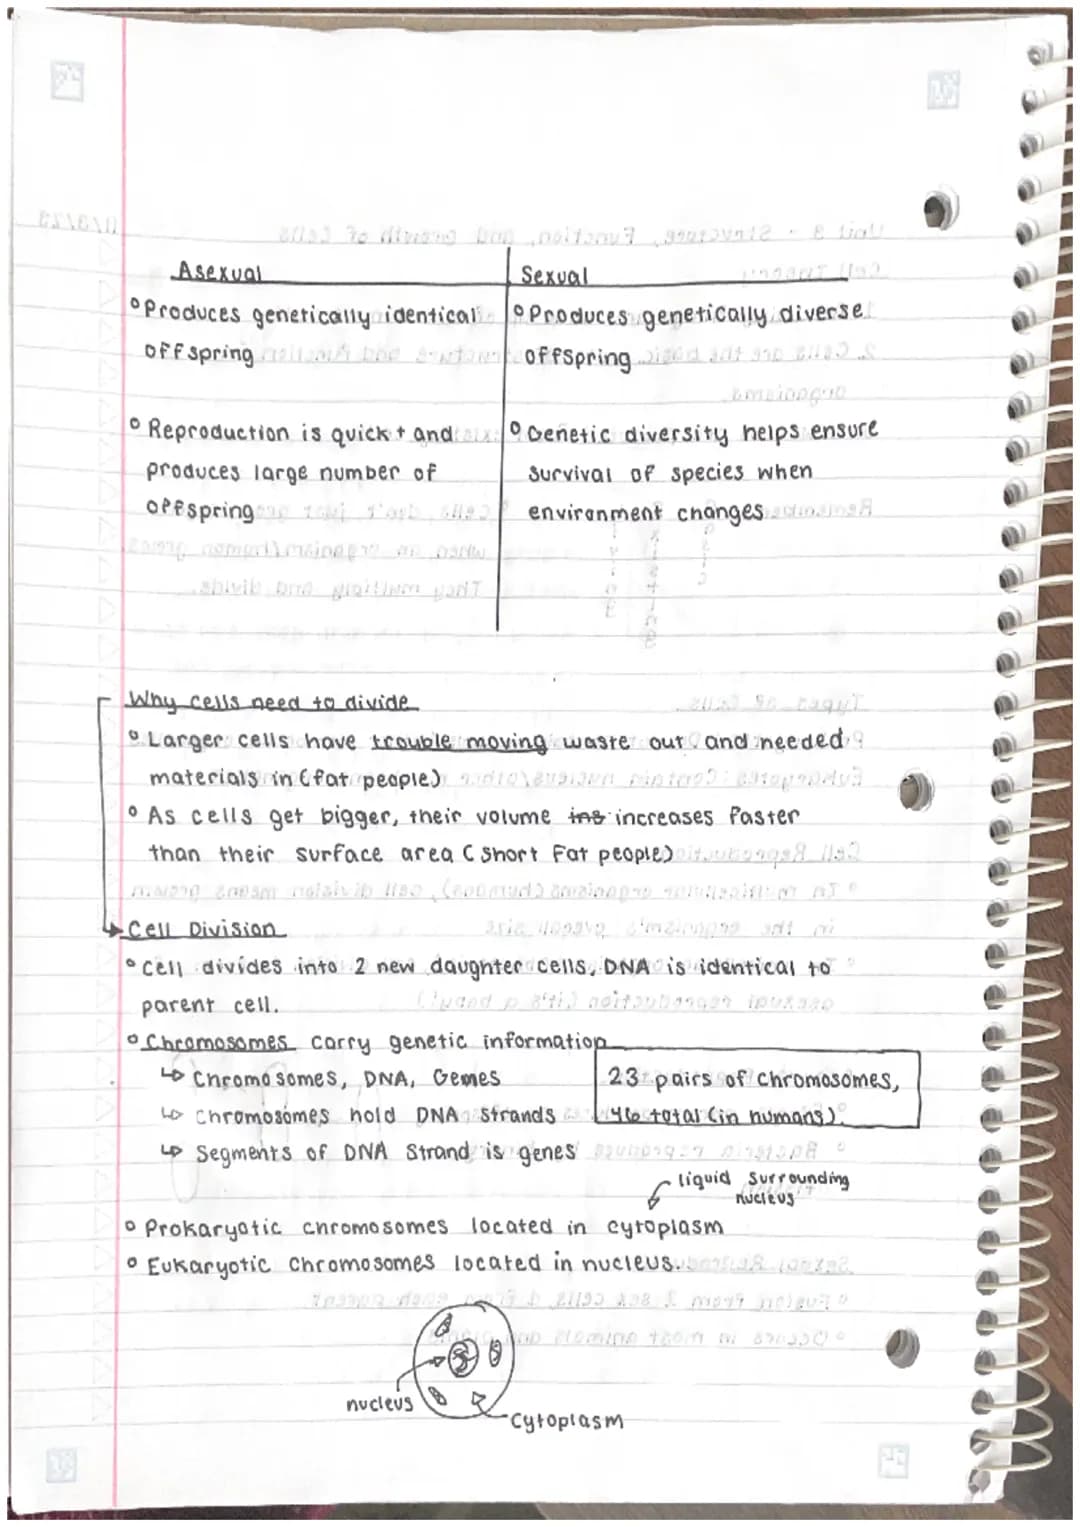 Asexual
Sexual
Produces genetically identical
offspring
Produces genetically diverse
offspring
Reproduction is quick + and
produces large number of
offspring
Genetic diversity helps ensure
survival of species when
environment changes
Why cells need to divide
Larger cells have trouble moving waste out and needed
materials in (fat people)
As cells get bigger, their volume ins increases faster
than their surface area (short fat people)
Cell Division
Cell divides into 2 new daughter cells, DNA is identical to
parent cell.
Chromosomes carry genetic information
↳ Chromosomes, DNA, Genes
↳ Chromosomes hold DNA strands
↳ Segments of DNA Strand is genes
23 pairs of chromosomes,
46 total (in humans)
liquid surrounding
nucleus
Prokaryotic chromosomes located in cytoplasm
Eukaryotic Chromosomes located in nucleus.
nucleus
Cytoplasm